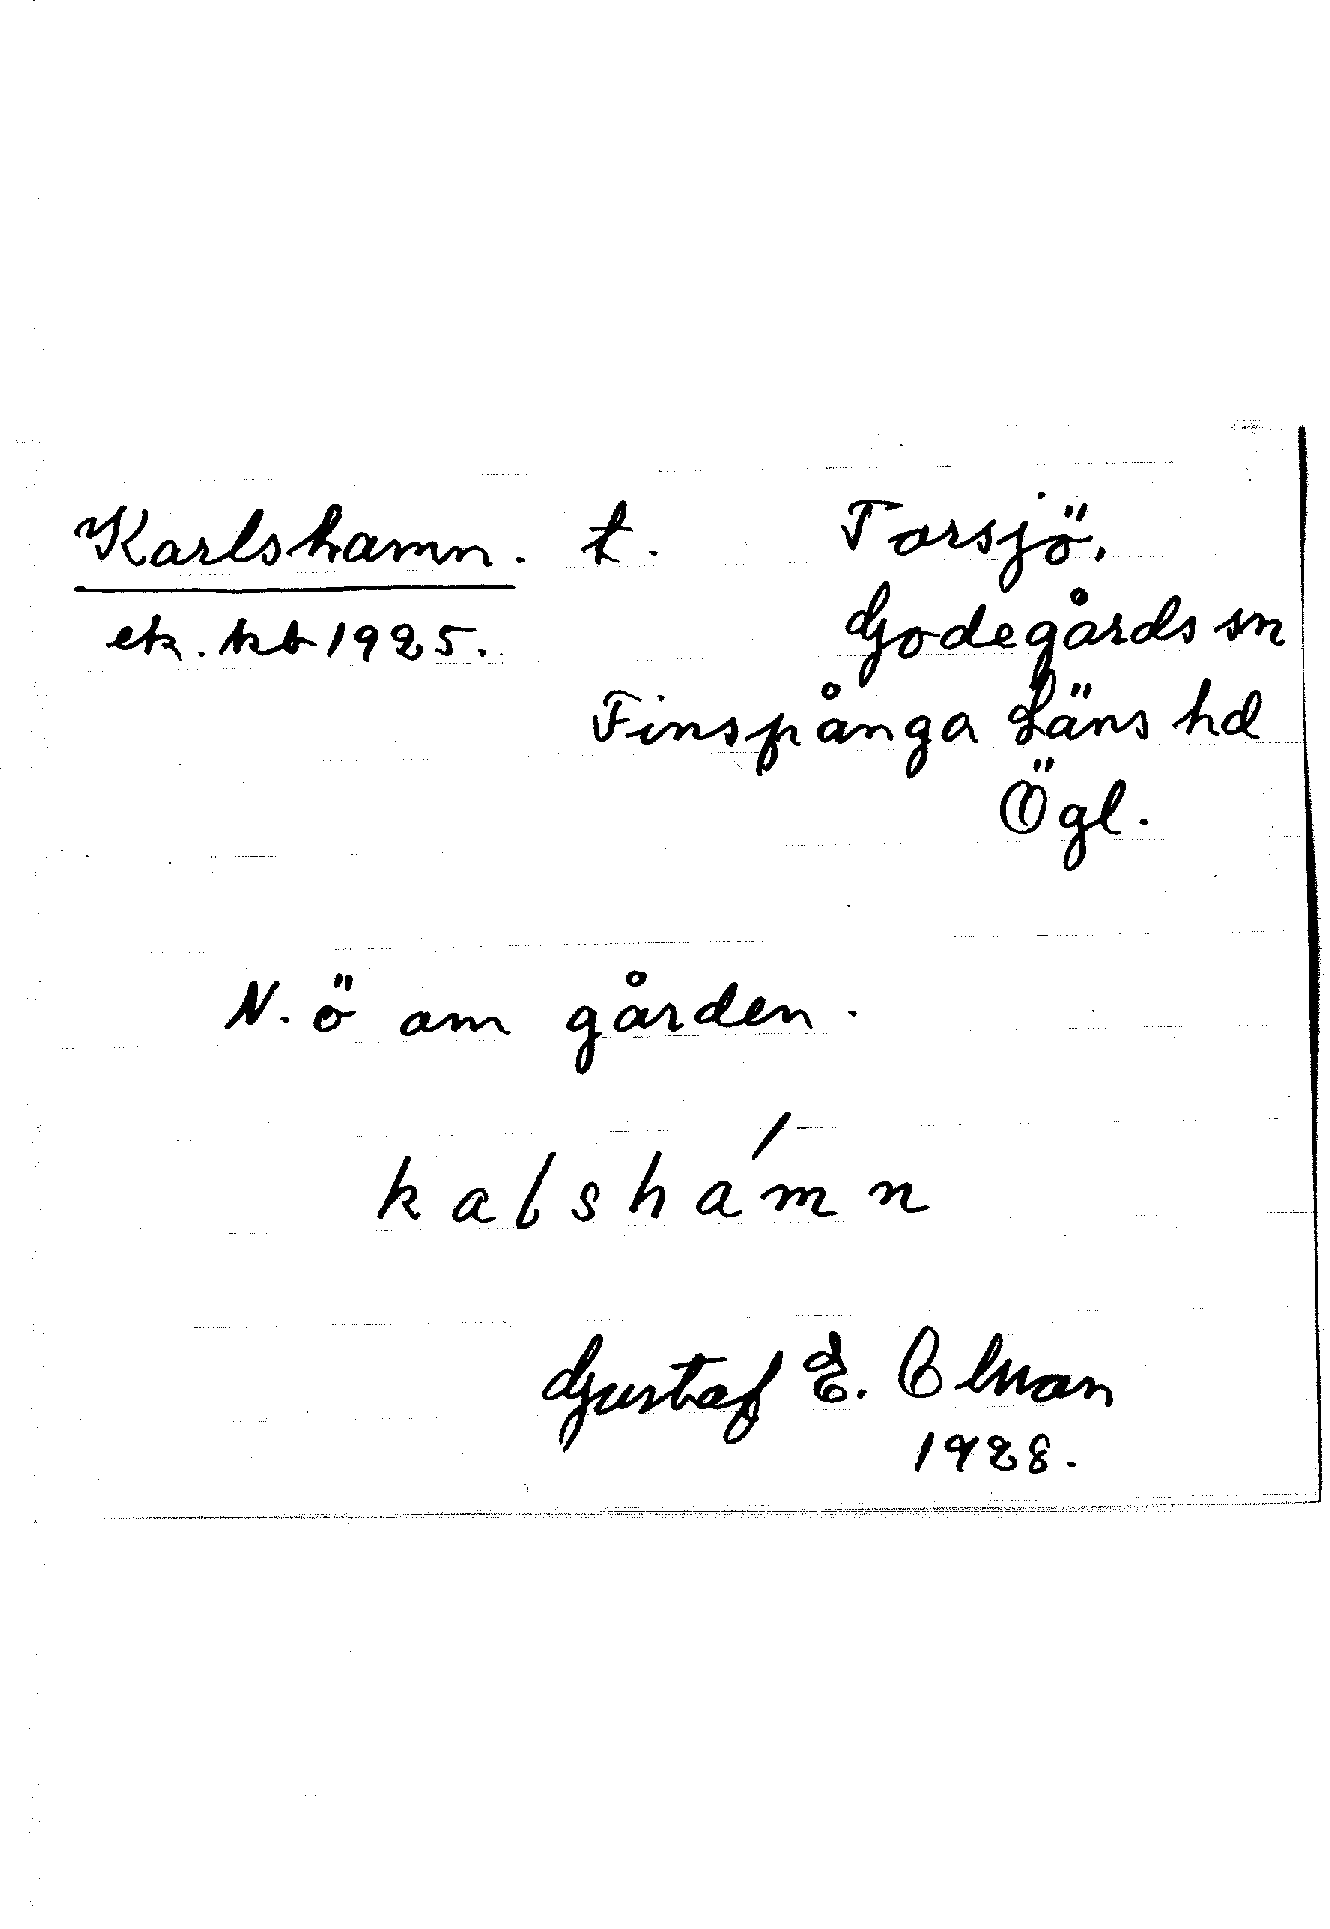 Karlshamn. t. Torsjö,
ek. kb 1925. Godegårds sn
Finspånga Läns hd
Ögl.
N. ö om gården.
kalshamn
Gustaf E.
1928.